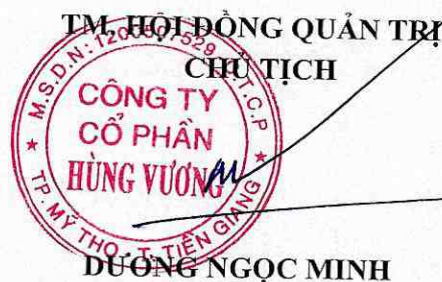 TM. HỘI ĐỒNG QUẢN TRỊ
CHỦ TỊCH
M.S.D.N: 1200507529 - C.T.C.P
CÔNG TY
CỔ PHẦN
HÙNG VƯƠNG
TP. MỸ THO - T. TIỀN GIANG
DƯƠNG NGỌC MINH